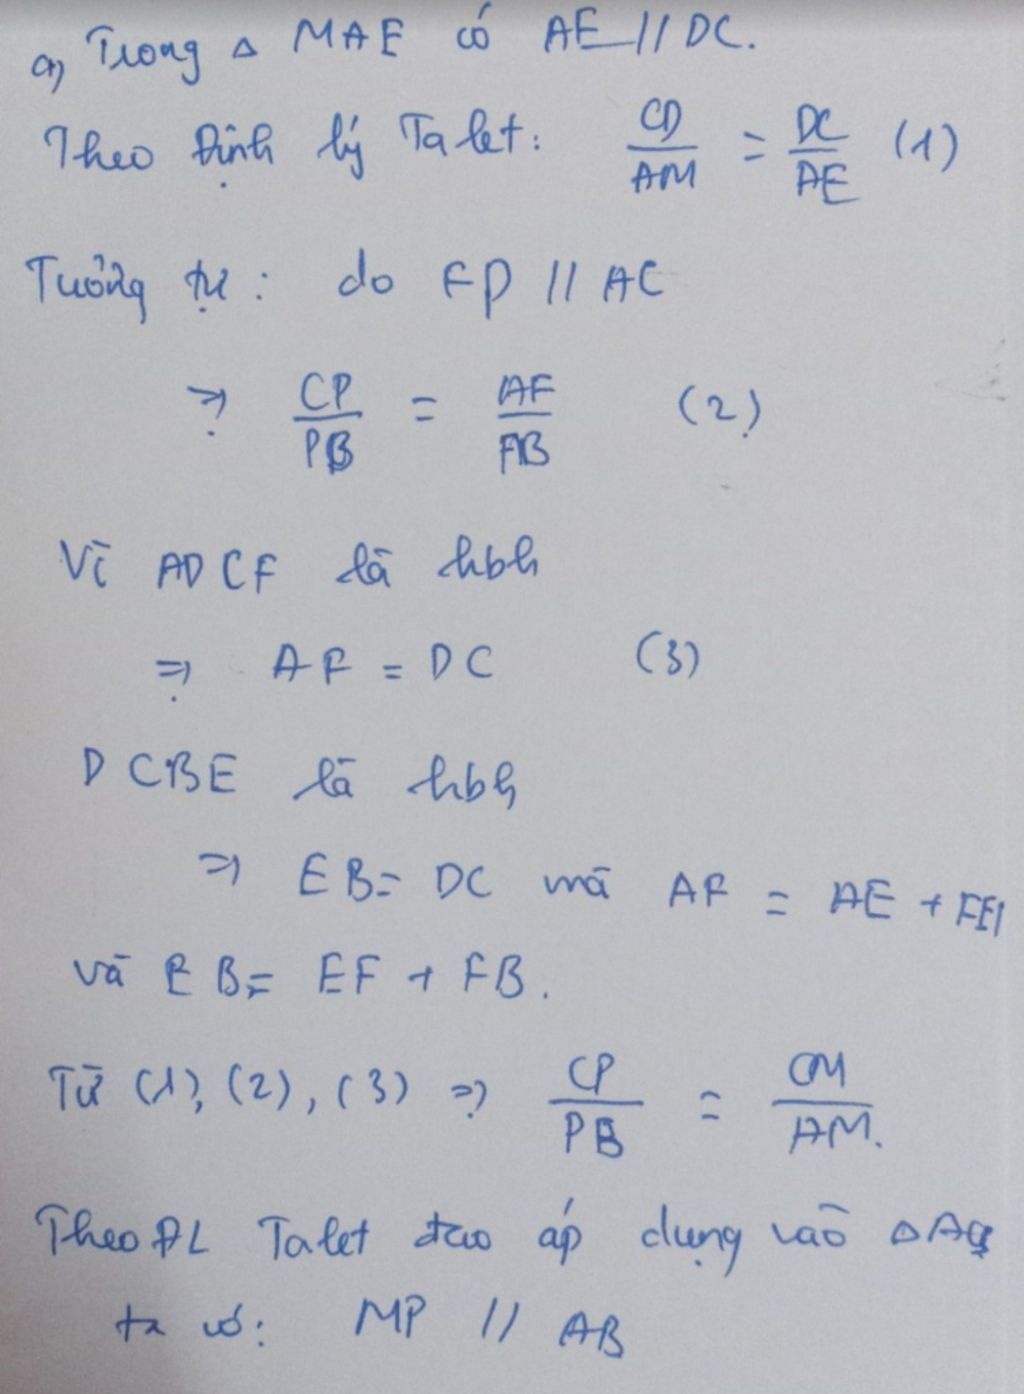 a) Trong Δ MAE có AE // DC.
Theo Định lý Ta let: CD/AM = DC/AE (1)
Tương tự: do FP // AC
=> CP/PB = AF/FB (2)
Vì ADCF là hbh
=> AF = DC (3)
DCBE là hbh
=> EB = DC mà AF = AE + FE
và EB = EF + FB.
Từ (1), (2), (3) => CP/PB = CM/AM.
Theo ĐL Talet đảo áp dụng vào
ta có: MP // AB